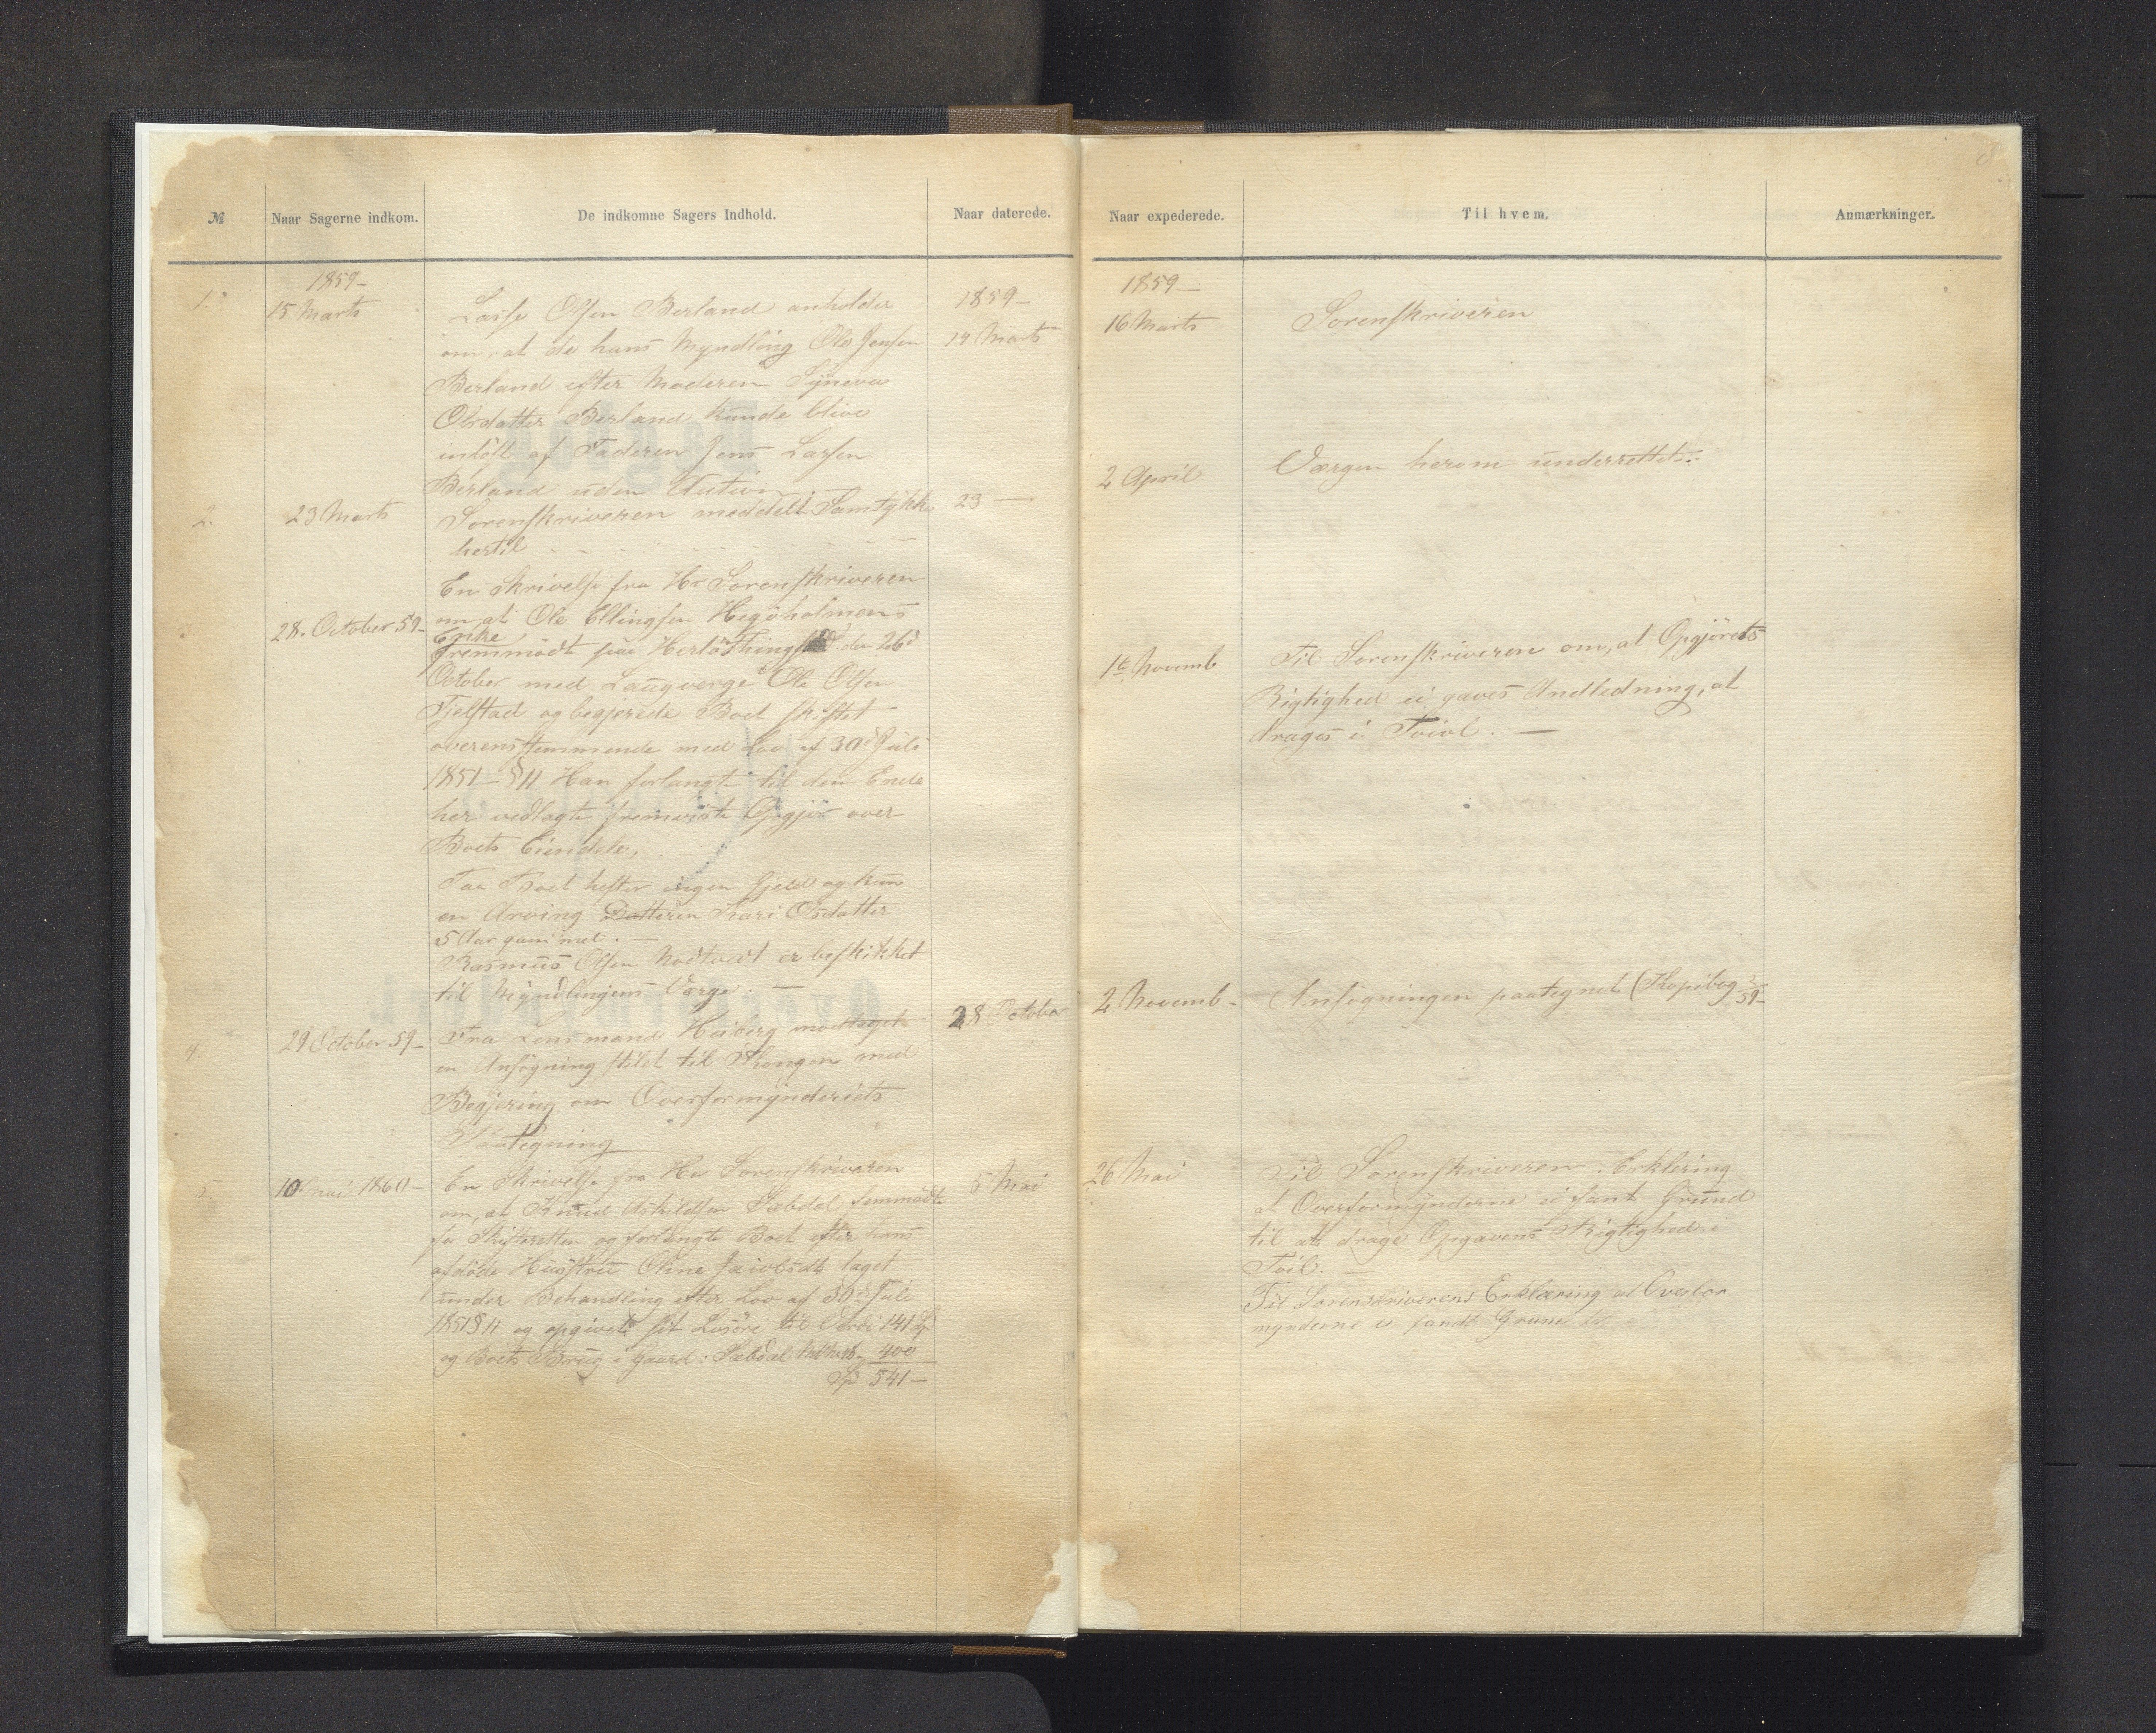 № Naar Sagerne indkom. De indkomne Sagers Indhold. Naar daterede.
1859-
1. 15 Marts Lasse Olsen Berland anholder 1859-
om, at de hans Myndling Ole Jensen 14 Marts
Berland efter Moderen Syneva
Olsdatter Berland kunde blive
indlöst af Faderen Jens Larsen
Berland uden Auction
2. 23 Marts Sorenskriveren meddelt Samtykke 23 —
hertil
En Skrivelse fra Hr Sorenskriveren
28. October 59- om, at Ole Ellingsen Hegöholmens
Enke
Fremmödt paa Herlö Thingsted den 26d
October med Laugverge Ole Olsen
Fjelstad og begjerede Boet skiftet
overensstemmende med Lov af 30d Juli
1851 - § 11 Han forlangte til den Ende
her vedlagte fremviste Opgjör over
Boets Eiendele,
Paa Boet hefter ingen Gjeld og kun
en Arving Datteren Kari Olsdatter
5 Aar gammel. —
Rasmus Olsen Nodtvedt er beskikket
til Myndlingens Værge. —
4 29 October 59- Fra Lensmand Heiberg modtaget 28 October
en Ansögning stilet til Kongen med
Begjering om Overformynderiets
Paategning
5. 10 Mai 1860- En Skrivelse fra Hr Sorenskriveren 5 Mai
om, at Knud Askildsen Sæbdal fremmödte
for Skifteretten og forlangte Boet efter hans
afdöde Hustru Oline Jacobsdt taget
under Behandling efter Lov af 30d Juli
1851 § 11 og opgivet sit Lösöre til Værdi 141 Sp
og Boets Brug i Gaard: Sæbdal 400
Sp 541 —
Naar expederede. Til hvem. Anmærkninger.
1859 —
16 Marts Sorenskriveren
2 April Værgen herom underrettet.
1te Novemb Til Sorenskriveren om, at Opgjörets
Rigtighed ei gaves Andledning, at
drages i Tvivl. —
2 Novemb- Ansögningen paategnet (Kopibog 59-
26 Mai Til Sorenskriveren. Erklering
at Overformynderne ei fant Grund
til at drage Opgavens Rigtighed i
Tvil. —
Til Sorenskriverens Erklæring at Overfor
mynderne ei fandt Grund til